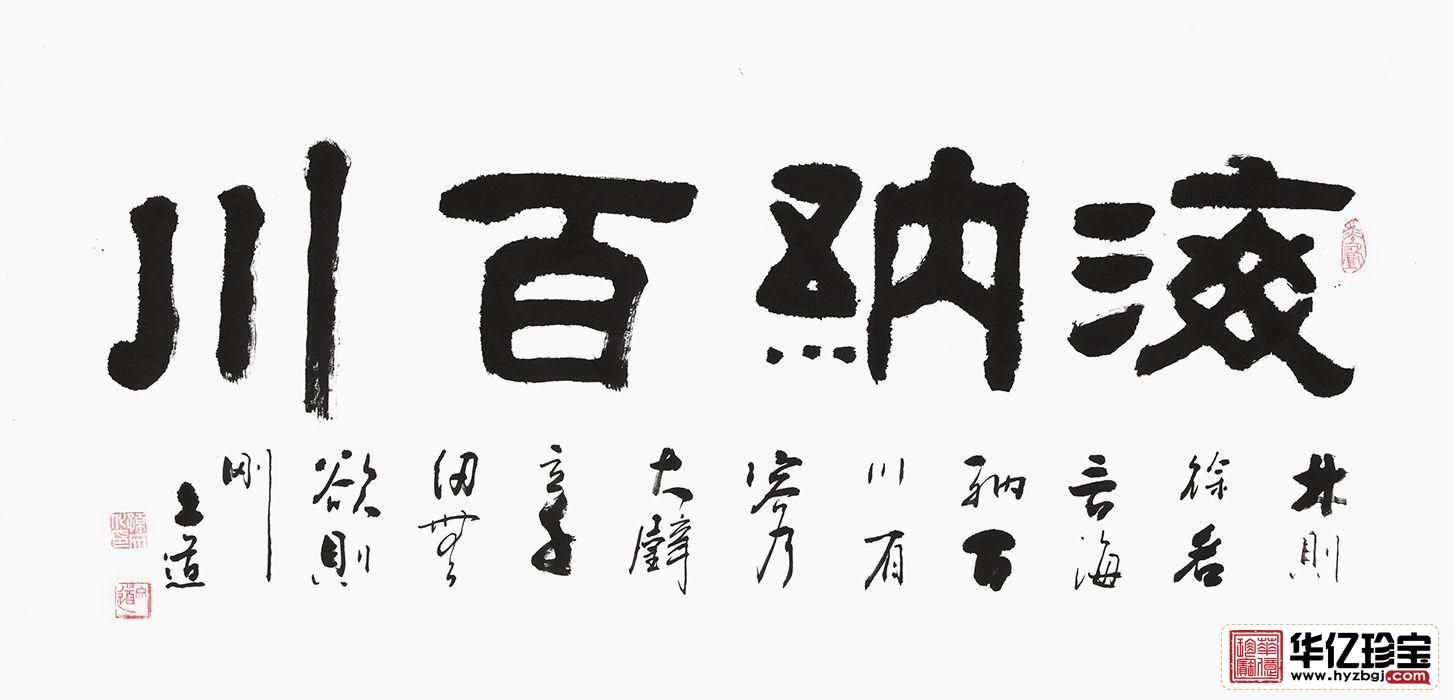 海納百川
林則
徐名
言海
納百
川有
容乃
大壁
立千
仞無
欲則
剛
道
华亿珍宝
www.hyzbgj.com